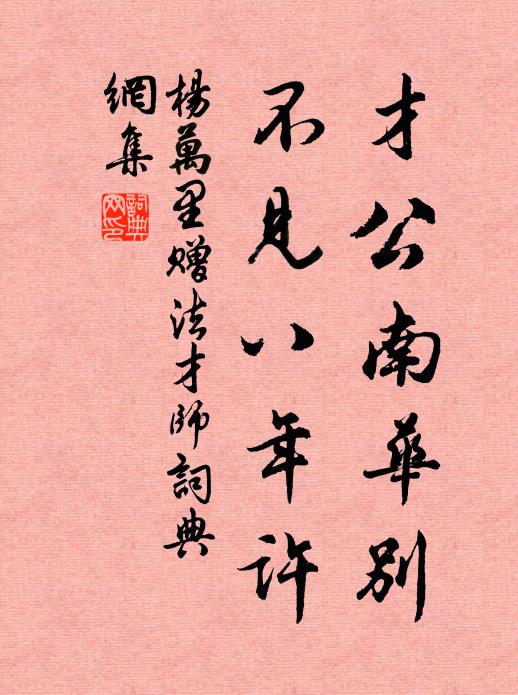 才公南華別
不見八年許
楊萬里贈法才師詞典
網集
詞典
网印